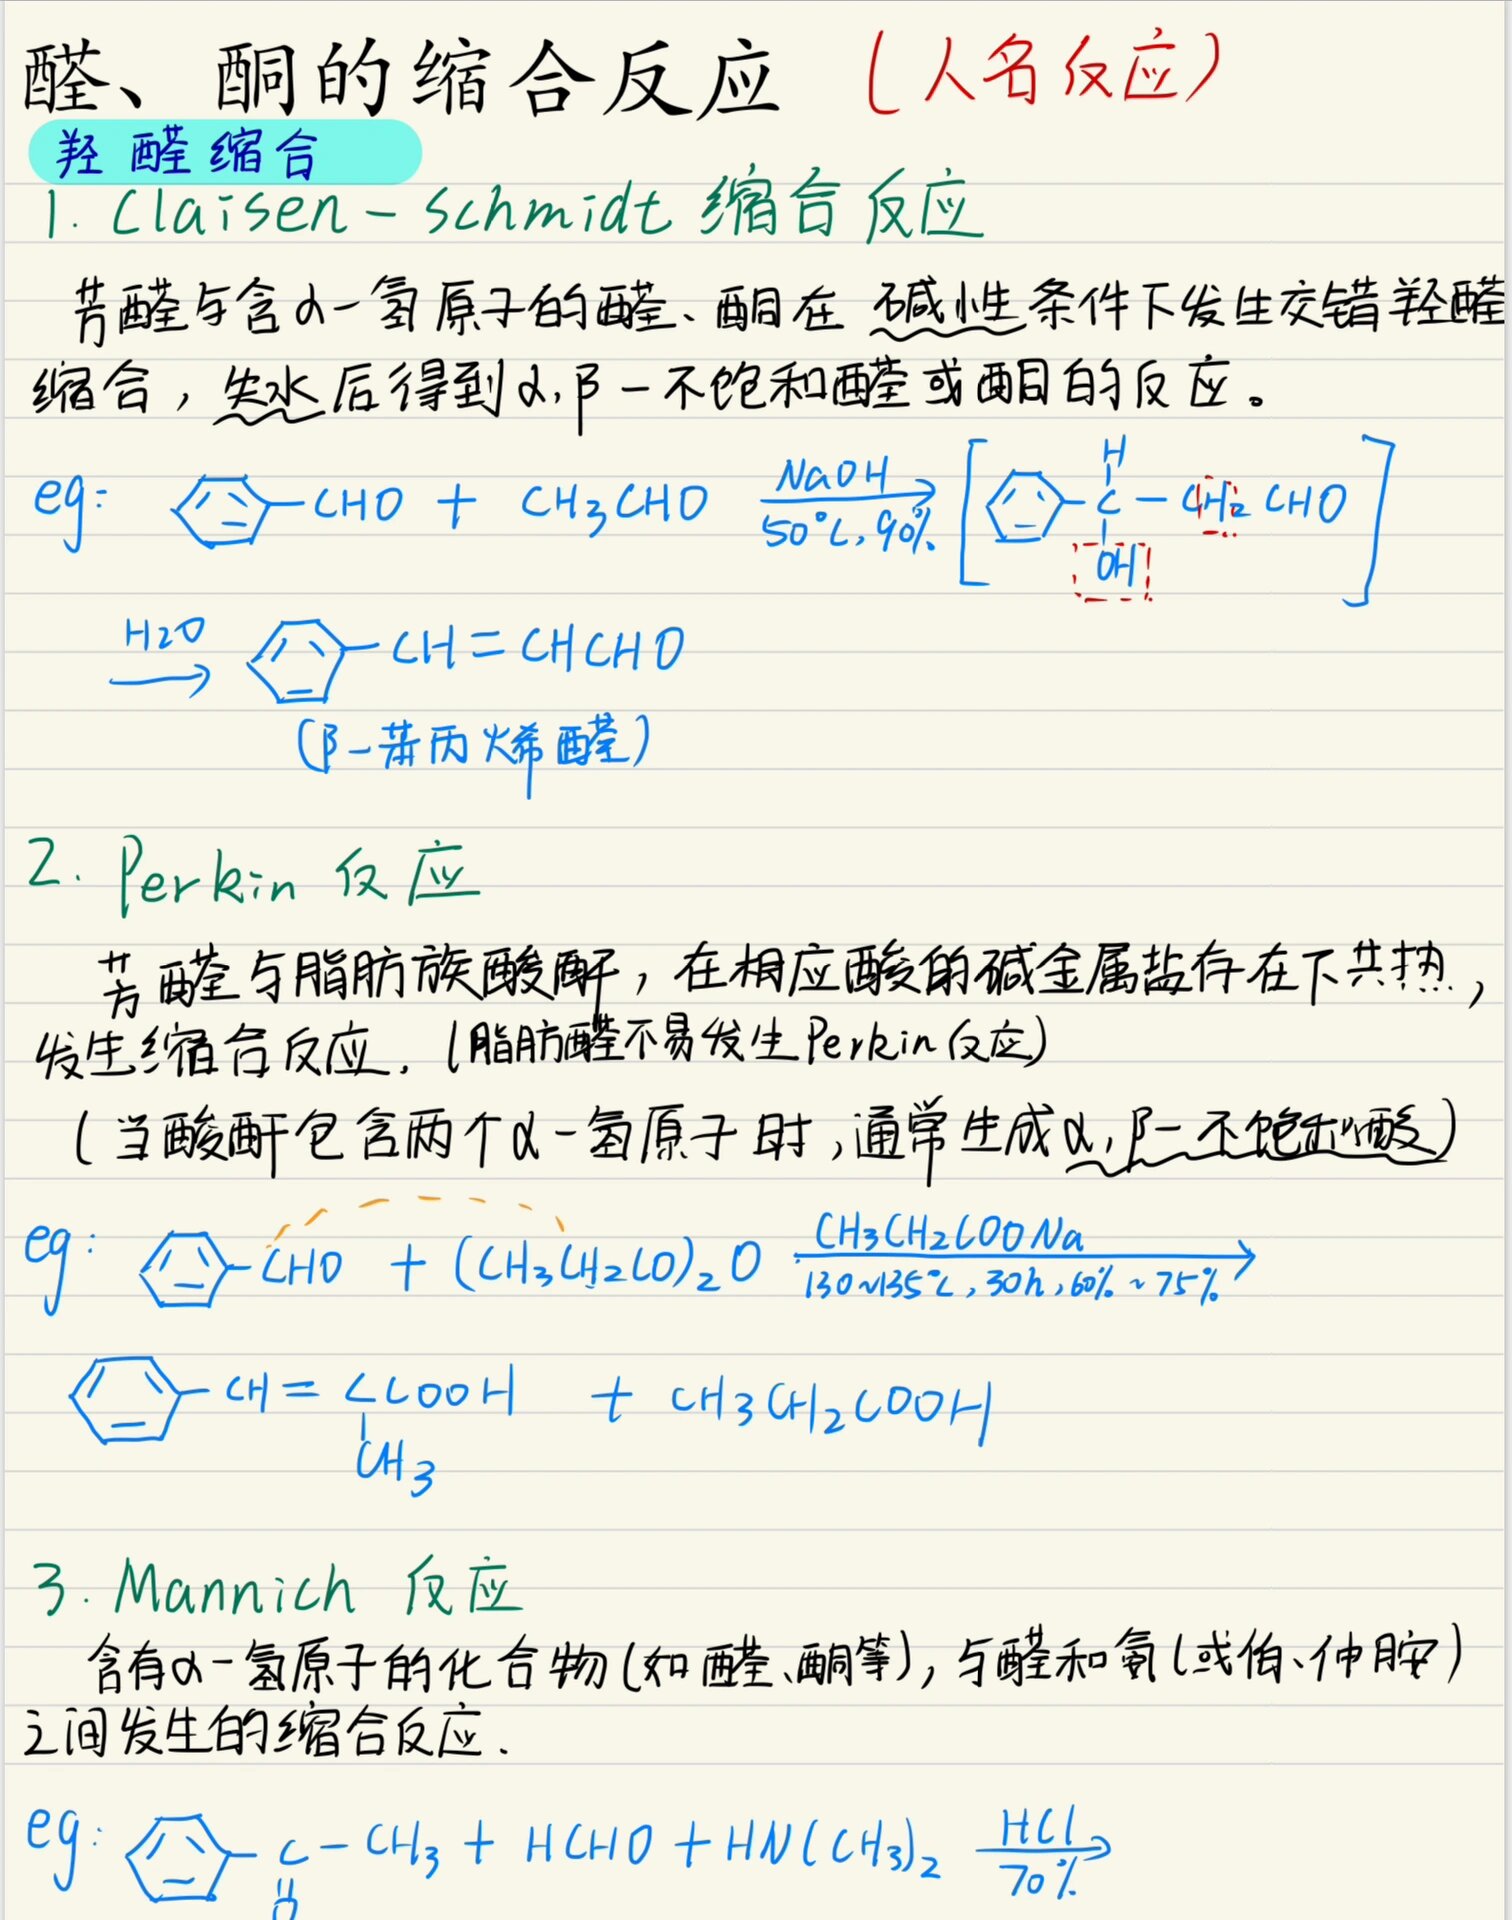 醛、酮的缩合反应 (人名反应)
羟醛缩合
1. Claisen-Schmidt 缩合反应
芳醛与含α-氢原子的醛、酮在碱性条件下发生交错羟醛
缩合，失水后得到α,β-不饱和醛或酮的反应。
eg: -CHO + CH3CHO NaOH 50℃,90% [ H -C-CH2CHO OH ]
H2O -CH=CHCHO
(β-苯丙烯醛)
2. Perkin 反应
芳醛与脂肪族酸酐，在相应酸的碱金属盐存在下共热，
发生缩合反应. (脂肪醛不易发生Perkin反应)
(当酸酐包含两个α-氢原子时,通常生成α,β-不饱和酸)
eg: -CHO + (CH3CH2CO)2O CH3CH2COONa 130~135℃,30h,60%~75%
-CH=CCOOH + CH3CH2COOH
CH3
3. Mannich 反应
含有α-氢原子的化合物(如醛、酮等),与醛和氨(或伯、仲胺)
之间发生的缩合反应.
eg: -C-CH3 + HCHO + HN(CH3)2 HCl 70%
O